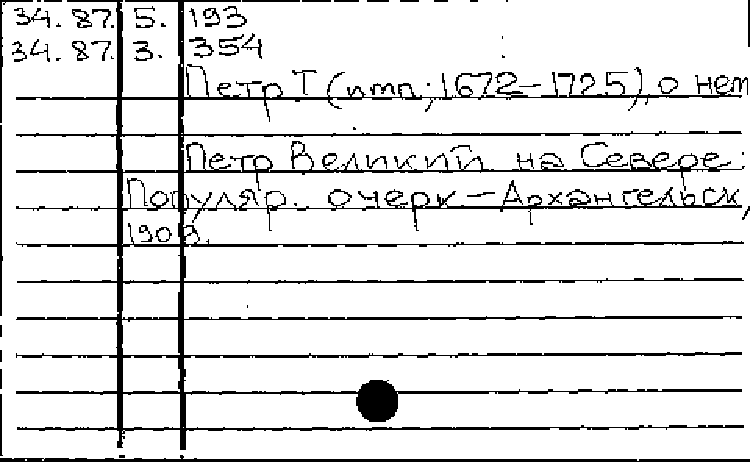 34. 87. 5. 193
34. 87. 3. 354
Петр I (имп; 1672-1725), о нем
Петр Великий на Севере:
Популяр. очерк - Архангельск,
1909.